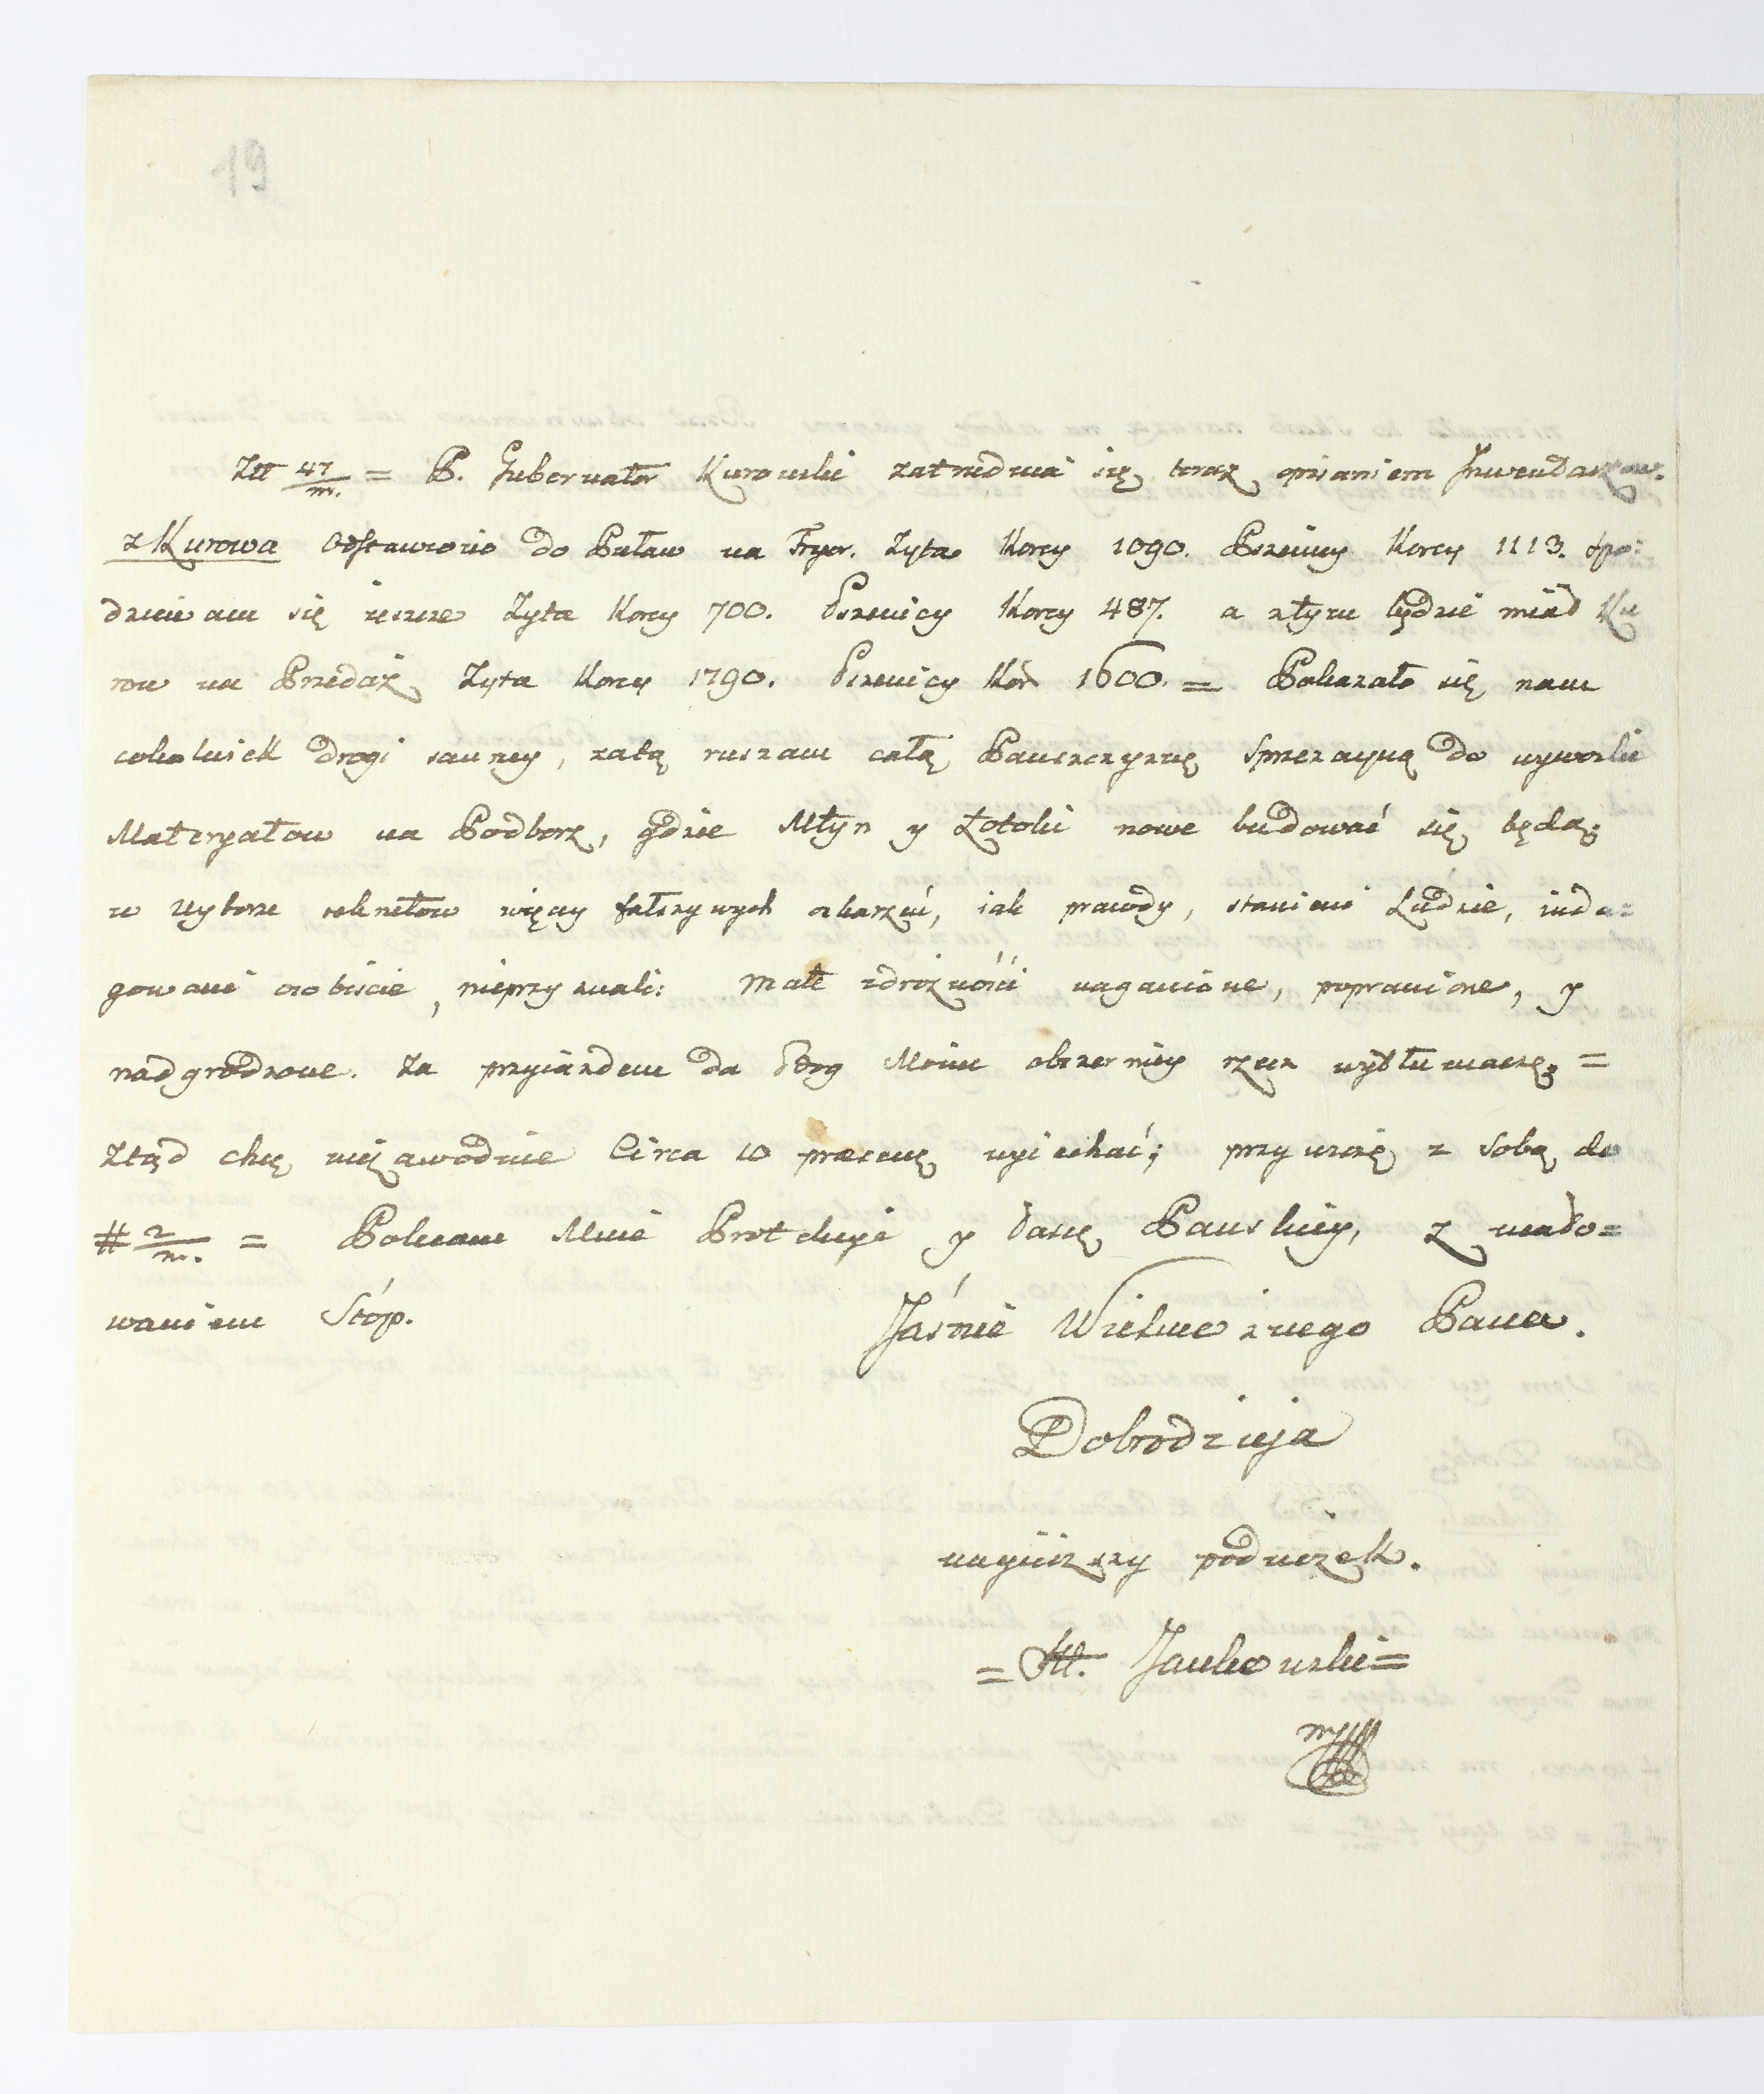 19
Złł 47/m. = P. Gubernator Kurowski zatrudnia się teraz opisaniem Inwentarzow.
z Kurowa Odstawiono do Puław na Fryor. Zyta Korcy 1090. Pszenicy Korcy 1113. spo:
dziewam się ieszcze Zyta Korcy 700. Pszenicy Korcy 487. a z tym będzie miał Ku
row na Przedaż Zyta Korcy 1790. Pszenicy Kor 1600. = Pokazało się nam
cokolwiek drogi sanney, zatą ruszam całą Panszczyznę Sprzezayną do wywozki
Materyałow na Podborz, gdzie Młyn y Łotoki nowe budować się będą;
w Wyborze rekrutow więcy fałszywych oskarżeń, iak prawdy, stawieni Ludzie, inda=
gowani osobiście, nieprzyznali: Małe zdrożności naganione, poprawione, y
nadgrodzone. Za przyiazdem da Bog Moim obszerniey rzecz wytłumaczę; =
Ztąd chcę niezawodnie Circa 10 praesens wyiechać; przywiozę z Sobą do
# 2/m. = Polecam Mnie Protekcyi y Łasce Panskiey, z ucało=
waniem Stóp.
Jaśnie Wielmożnego Pana.
Dobrodzieja
nayniższy podnóżek.
= Jankowski =
mp